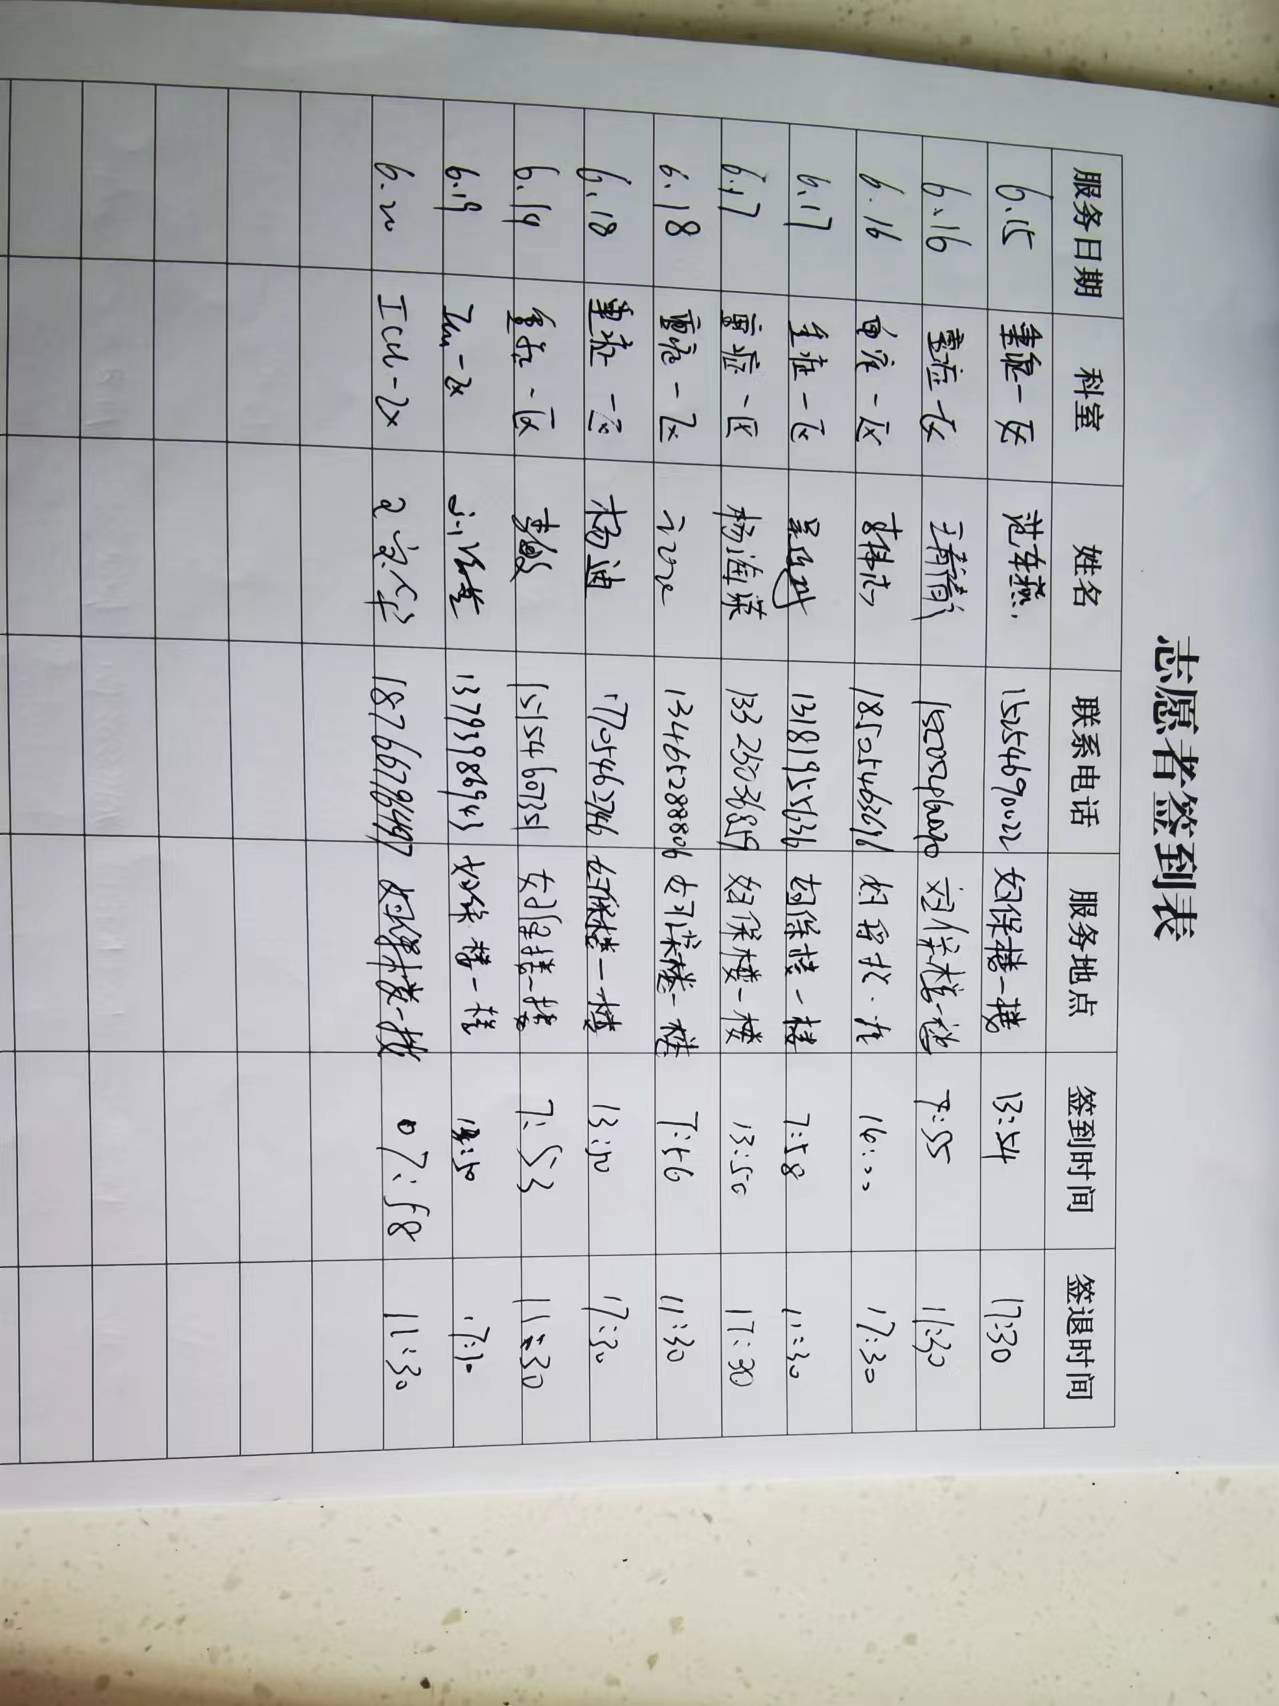 志愿者签到表
服务日期 科室 姓名 联系电话 服务地点 签到时间 签退时间
6.15 重症一区 范车燕 15254690022 妇保楼一楼 13:54 17:30
6.16 重症一区 妇保楼一楼 7:55 11:30
6.16 重症一区 18505463696 16:00 17:30
6.17 重症一区 13181955636 妇保楼一楼 7:58 11:30
6.17 重症一区 杨海洋 13325036859 妇保楼一楼 13:50 17:30
6.18 重症一区 13465288806 妇保楼一楼 7:56 11:30
6.18 重症一区 杨迪 17705462746 妇保楼一楼 13:50 17:30
6.19 重症一区 李敏 15154607351 妇保楼一楼 7:53 11:30
6.19 13793986943 妇保楼一楼 17:30
6.20 ICU-区 18766796497 妇保楼一楼 07:58 11:30